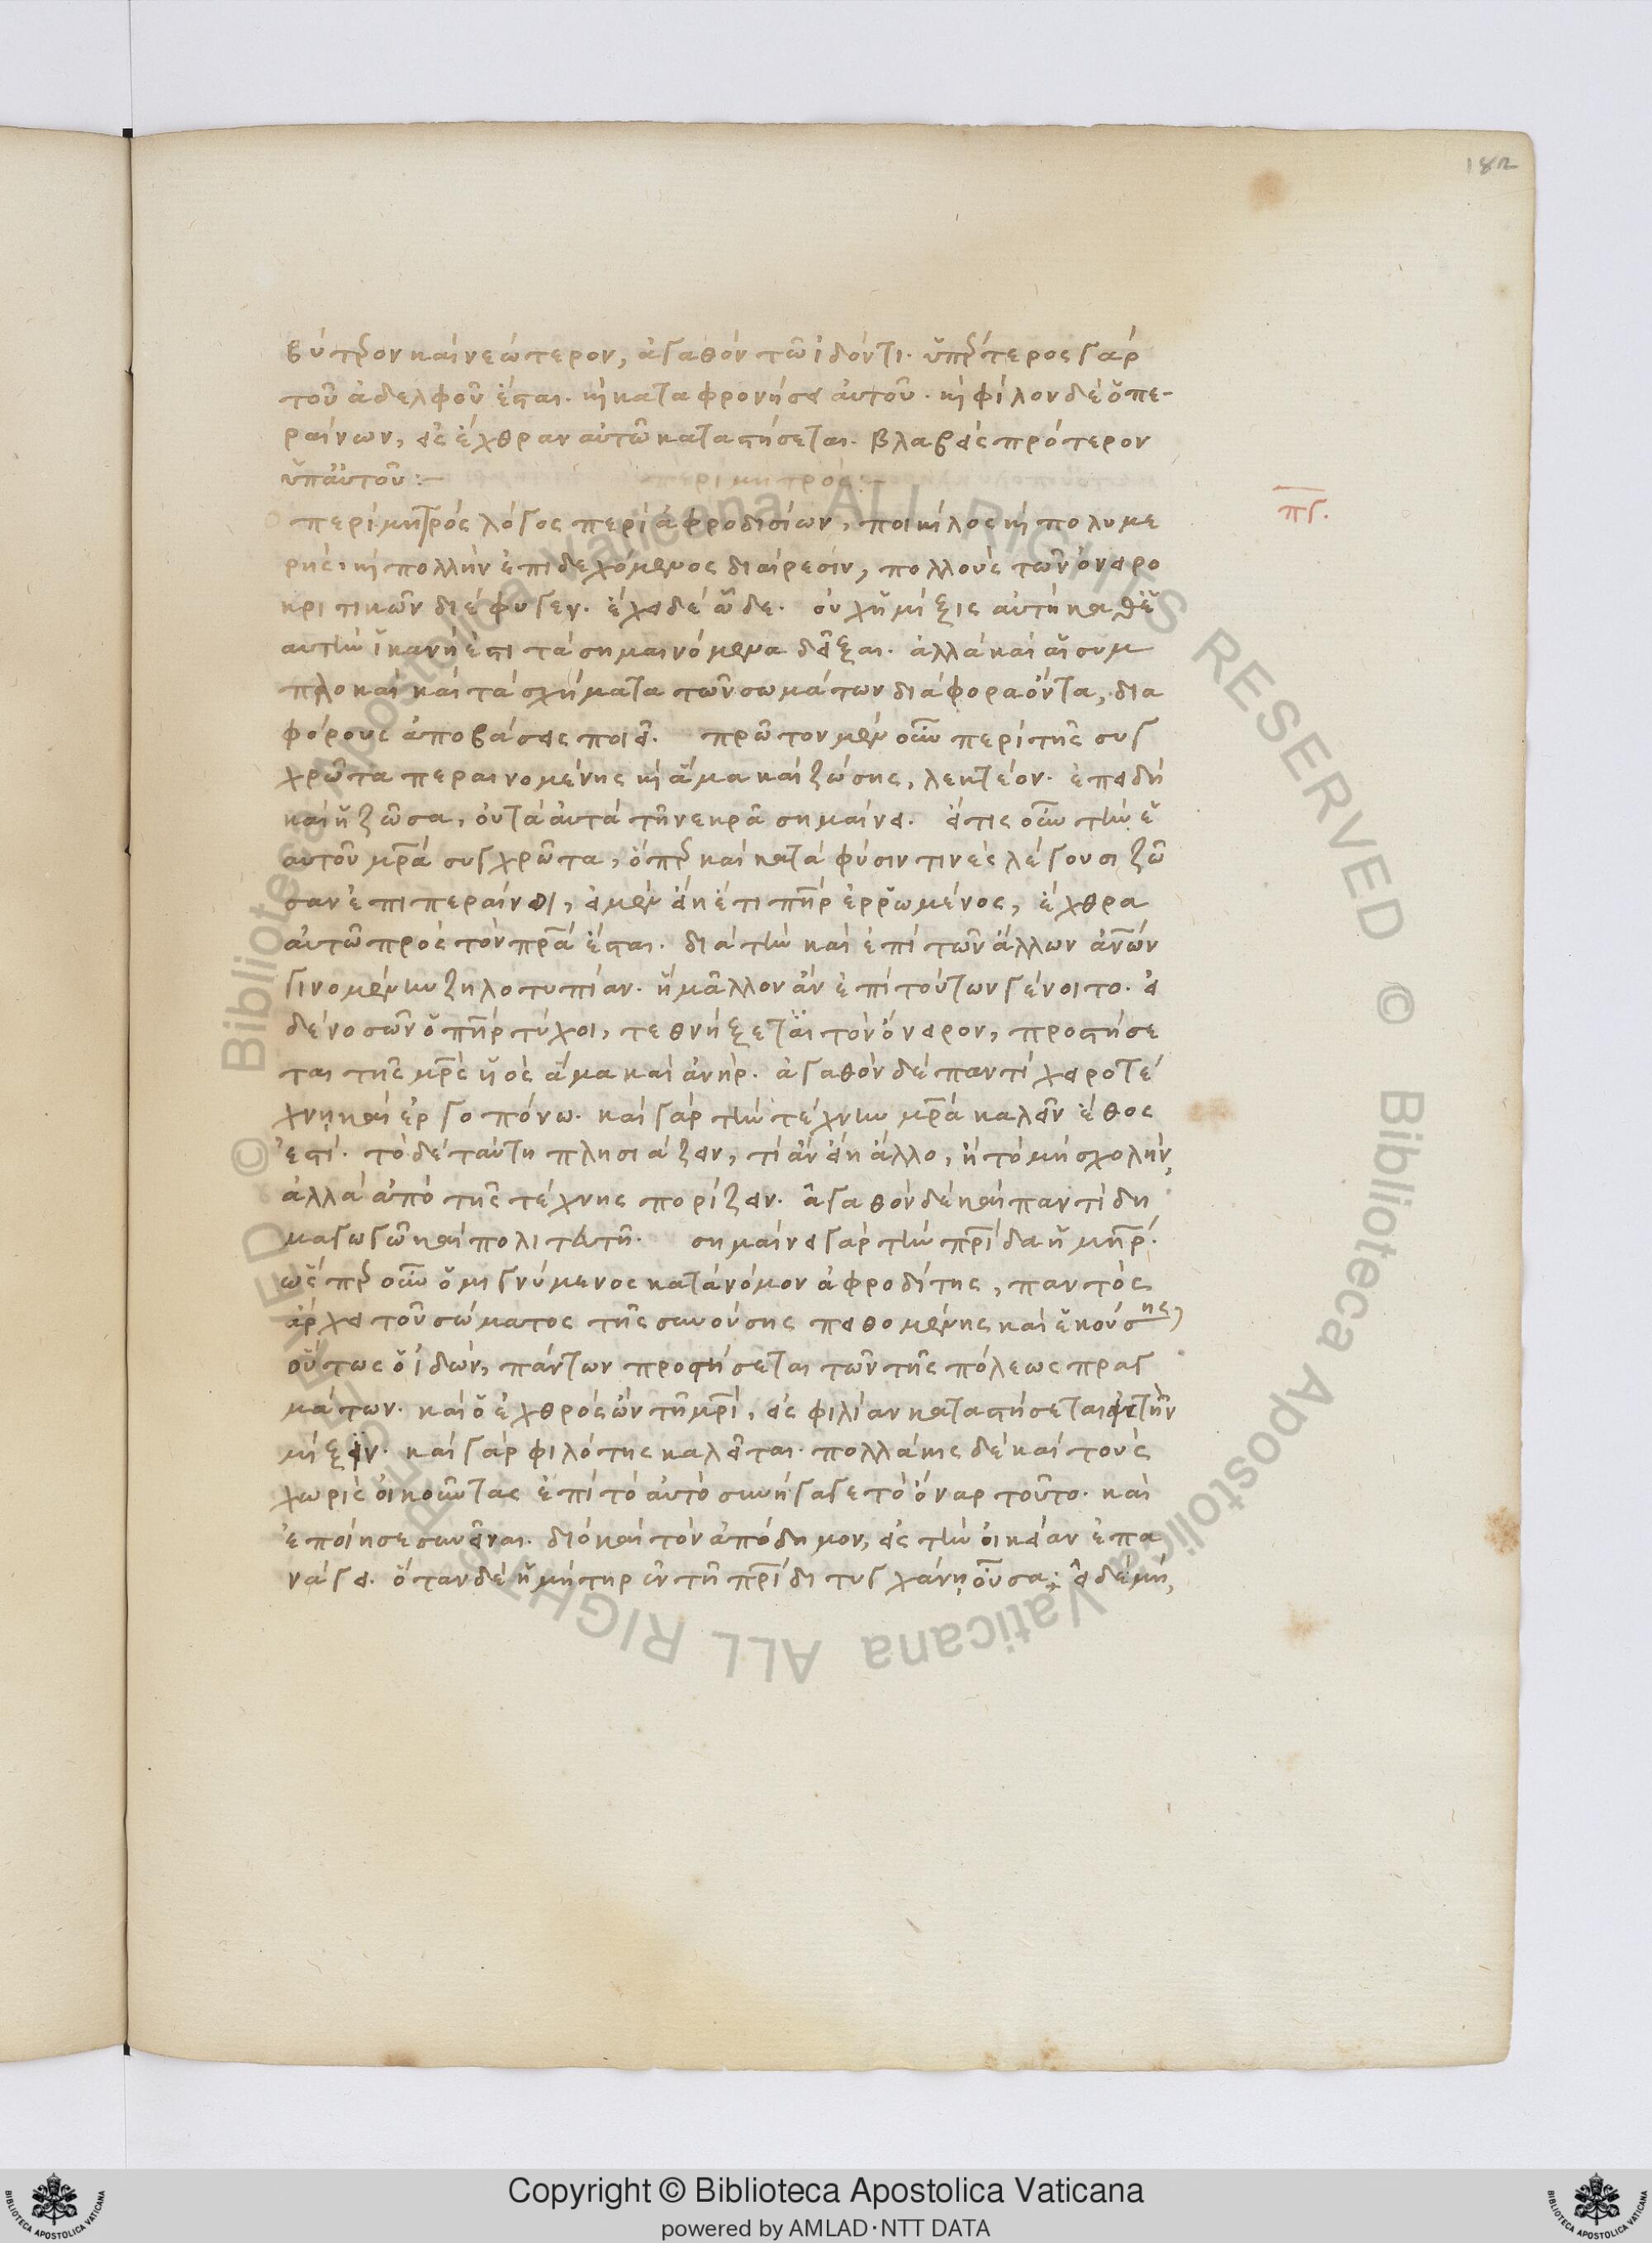 182
βύτερον καὶ νεώτερον, ἀγαθὸν τῶ ἰδόντι. ὑπέρτερος γὰρ
τοῦ ἀδελφοῦ ἔσται. καὶ καταφρονήσει αὐτοῦ. καὶ φίλον δὲ ὁ πε-
ραίνων, εἰς ἔχθραν αὐτῶ καταστήσεται. βλαβεὶς πρότερον
ὑπ' αὐτοῦ:-
περὶ μητρὸς:-
πγ.
περὶ μητρὸς λόγος περὶ ἀφροδισίων, ποικίλος καὶ πολυμε
ρὴς. καὶ πολλὴν ἐπιδεχόμενος διαίρεσιν, πολλοὺς τῶν ὀνειρο
κριτικῶν διέφυγεν. ἔχει δὲ ὧδε. οὐχ ἡ μίξις αὐτὴ καθ' ἑ
αυτὴν ἱκανή ἐστι τὰ σημαινόμενα δεῖξαι. ἀλλὰ καὶ αἱ συμ
πλοκαὶ καὶ τὰ σχήματα τῶν σωμάτων διάφορα ὄντα, δια
φόρους ἀποβάσεις ποιεῖ. πρῶτον μὲν οὖν περὶ τῆς συγ
χρῶτα περαινομένης καὶ ἅμα καὶ ζώσης, λεκτέον. ἐπειδὴ
καὶ ἡ ζῶσα, οὐ ταὐτὰ τῆ νεκρᾶ σημαίνει. εἴ τις οὖν τὴν ἑ
αυτοῦ μρᾶ συγχρῶτα, ὅπερ καὶ κατὰ φύσιν τινὲς λέγουσι ζῶ
σαν ἐπιπεραίνει, εἰ μὲν εἴη ἔτι πηρ ἐρρωμένος, ἔχθρα
αὐτῶ πρὸς τὸν πρᾶ ἔσται. διὰ τὴν καὶ ἐπὶ τῶν ἄλλων ἀνῶν
γινομένην ζηλοτυπίαν. ἣ μᾶλλον ἂν ἐπὶ τούτων γένοιτο. εἰ
δὲ νοσῶν ὁ πηρ τύχοι, τεθνήξεται τὸν ὄνειρον, προστήσε
ται τῆς μρς ὑὸς ἅμα καὶ ἀνήρ. ἀγαθὸν δὲ παντὶ χειροτέ
χνη καὶ ἐργοπόνω. καὶ γὰρ τὴν τέχνην μρα καλεῖν ἔθος
ἐστί. τὸ δὲ ταύτη πλησιάζειν, τί ἂν εἴη ἄλλο, ἢ τὸ μὴ σχολὴν,
ἀλλὰ ἀπὸ τῆς τέχνης πορίζειν. ἀγαθὸν δὲ καὶ παντὶ δη
μαγωγῶ καὶ πολιτευτῆ. σημαίνει γὰρ τὴν πρίδα ἡ μηρ.
ὥσπερ οὖν ὁ μιγνύμενος κατὰ νόμον ἀφροδίτης, παντὸς
ἄρχει τοῦ σώματος τῆς συνούσης πειθομένης καὶ ἑκούσης,
οὕτως ὁ ἰδὼν, πάντων προστήσεται τῶν τῆς πόλεως πραγ
μάτων. καὶ ὁ ἐχθρὸς ὢν τῆ μρὶ, εἰς φιλίαν καταστήσεται ἐκ τὴν
μίξιν. καὶ γὰρ φιλότης καλεῖται. πολλάκις δὲ καὶ τοὺς
χωρὶς οἰκοῦντας ἐπὶ τὸ αὐτὸ συνήγαγε τὸ ὄναρ τοῦτο. καὶ
ἐποίησε συνεῖναι. διὸ καὶ τὸν ἀπόδημον, εἰς τὴν οἰκείαν ἐπα
νάγει. ὅταν δὲ ἡ μήτηρ ἐν τῆ πρίδι τυγχάνη οὖσα: εἰ δὲ μή,
Copyright © Biblioteca Apostolica Vaticana
powered by AMLAD·NTT DATA
BIBLIOTECA APOSTOLICA VATICANA
BIBLIOTECA APOSTOLICA VATICANA
© Biblioteca Apostolica Vaticana ALL RIGHTS RESERVED © Biblioteca Apostolica Vaticana ALL RIGHTS RESERVED